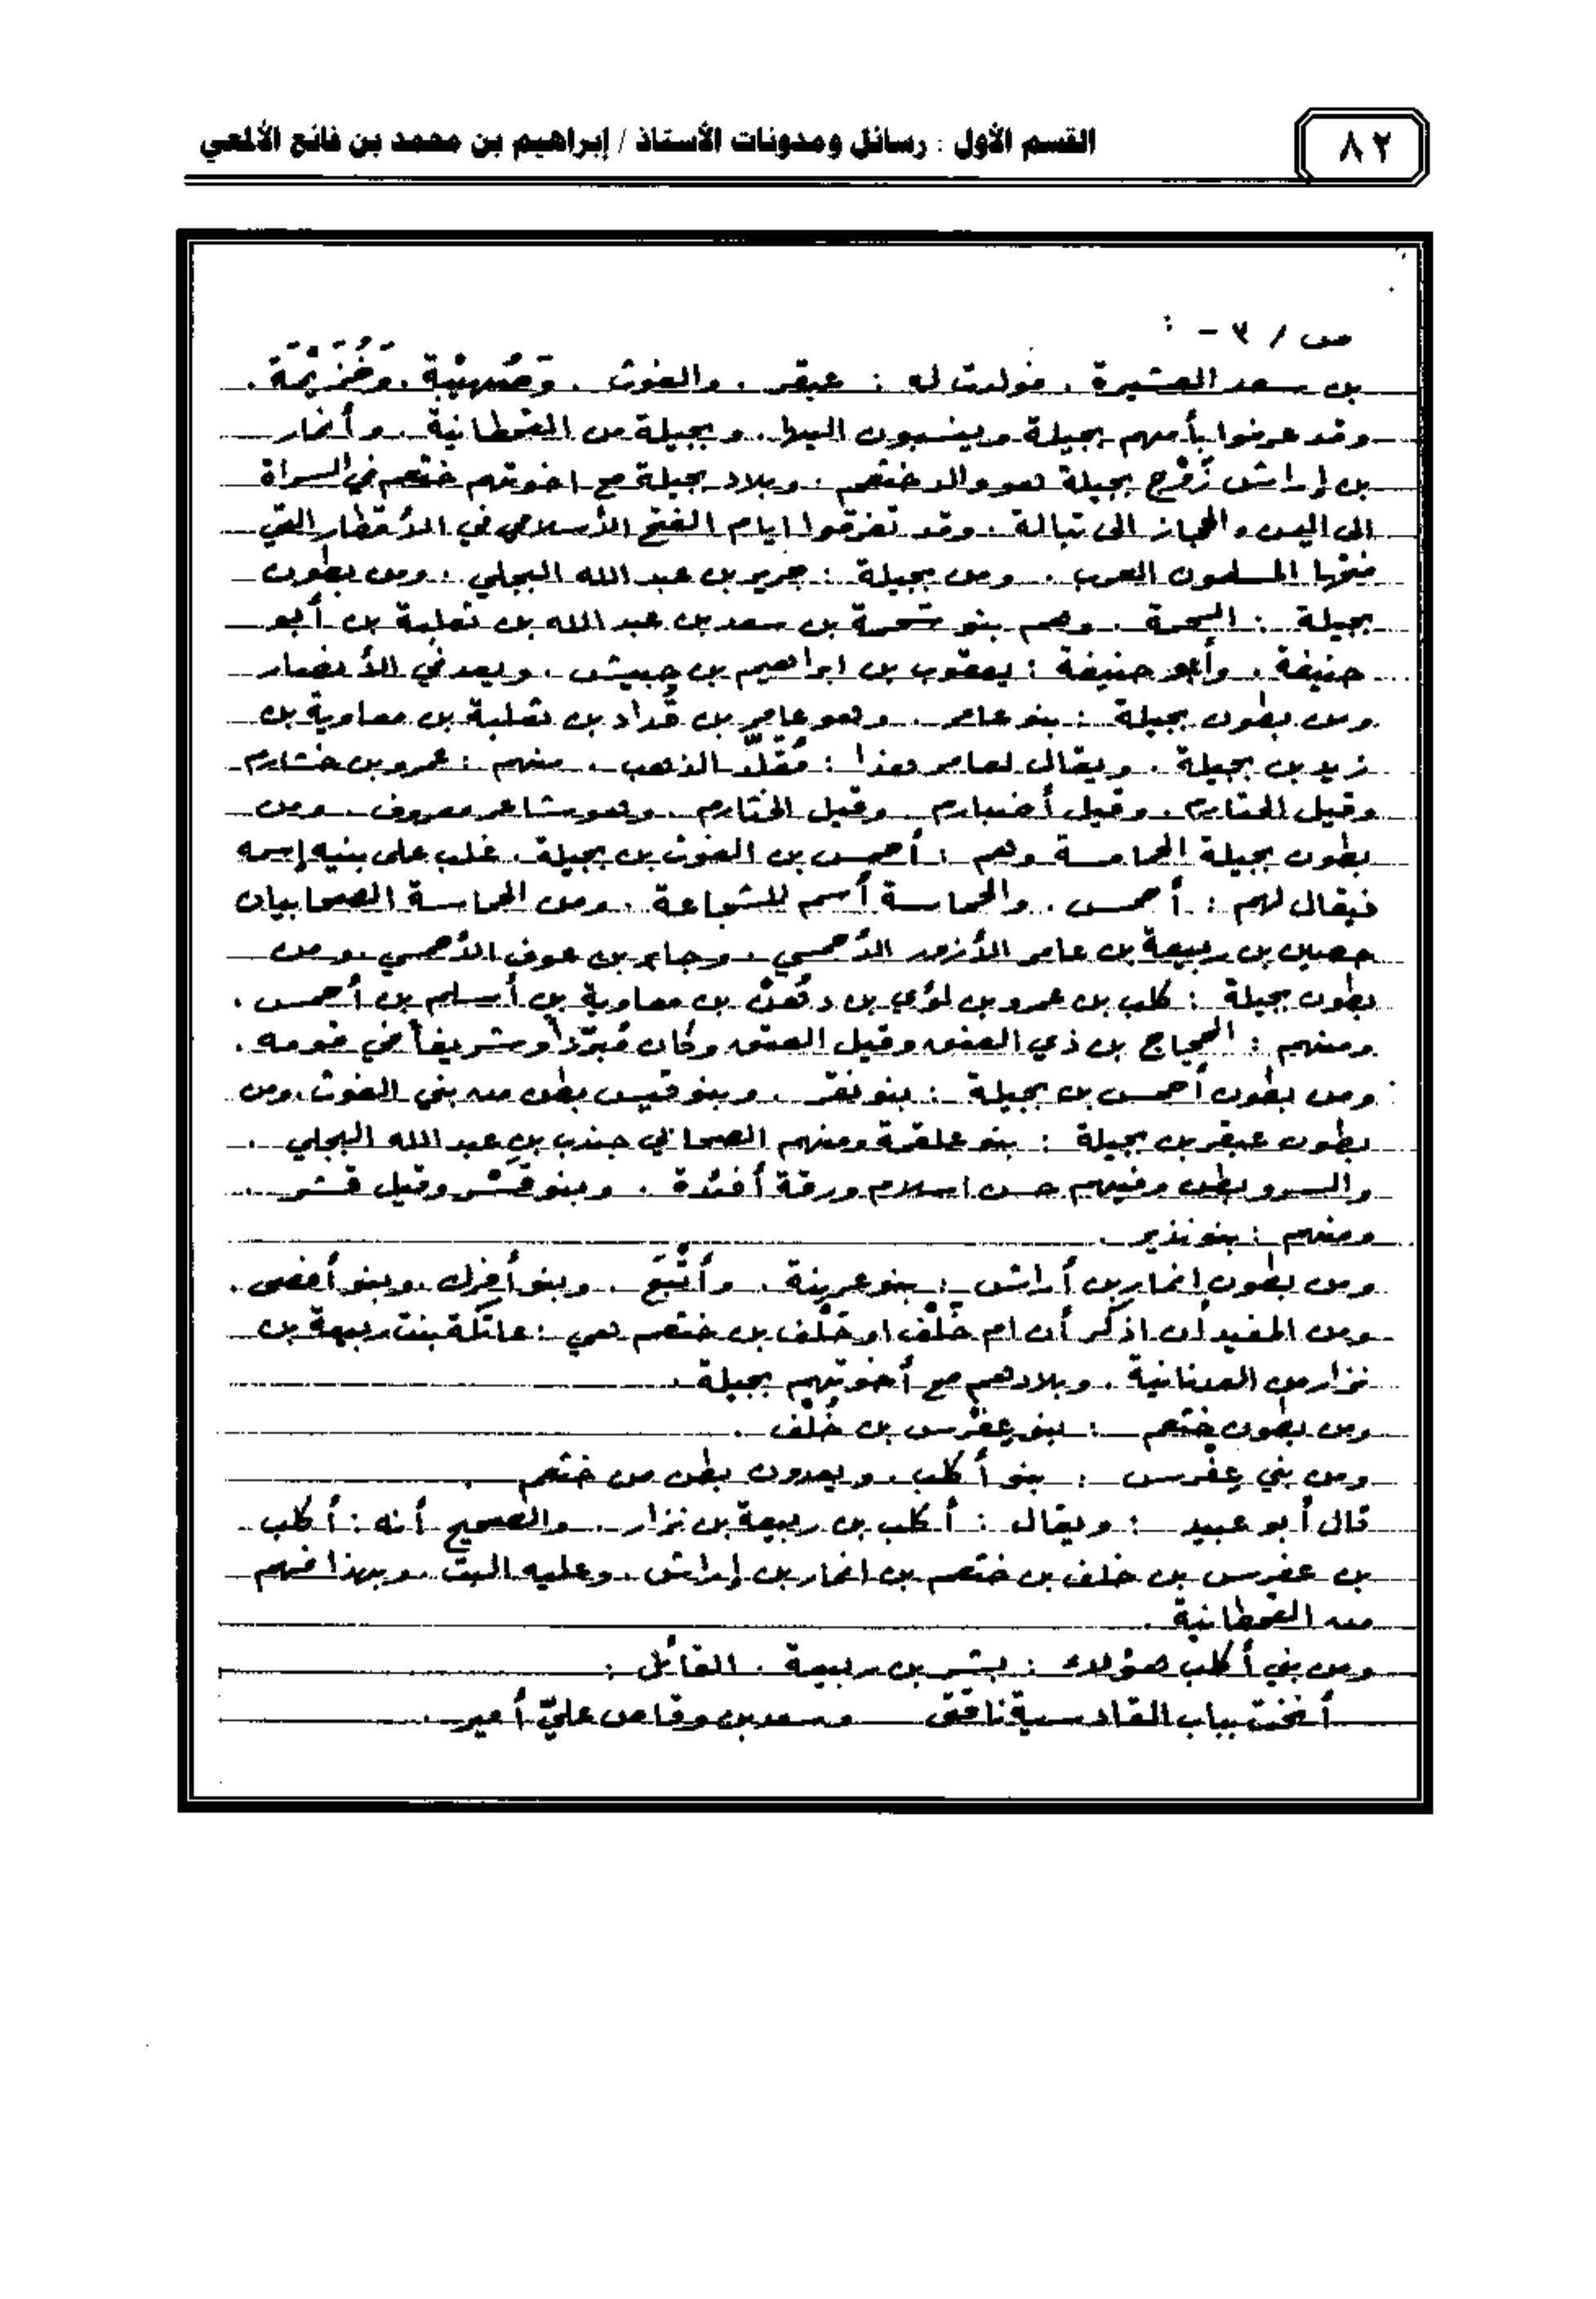 ٨٢
القسم الأول : رسائل ومدونات الأستاذ / إبراهيم بن محمد بن فائع الألمعي
ص / ٣ - :
بن سعد العشيرة . فولدت له : عبقر . والغوث . وَصُهَيْبَة . وَخُزَيْمَة .
وقد عرفوا بأمهم بجيلة وينسبون اليها . وبجيلة من القحطانية . وأنمار
بن إراش زَوْج بجيلة هو والد خثعم . وبلاد بجيلة مع اخوتهم خثعم في السراة
الى اليمن والحجاز الى تبالة . وقد تفرقوا ايام الفتح الأسلامي في الأقطار التي
فتحها المسلمون العرب . ومن بجيلة : جرير بن عبد الله البجلي . ومن بطون
بجيلة : السحمة . وهم بنو سحمة بن سعد بن عبد الله بن ثعلبة بن أبو
حنيفة . وأبو حنيفة : يعقوب بن ابراهيم بن حبيش . ويعد في الأنصار
ومن بطون بجيلة : بنو عامر . وهو عامر بن قُداد بن ثعلبة بن معاوية بن
زيد بن بجيلة . ويقال لعامر هذا : مُقَلَّد الذهب . منهم : عمرو بن خثارم
وقيل الخثارم . وقيل أضبارم . وقيل الخثارم . وهو شاعر معروف . ومن
بطون بجيلة الحماسة وهم : أحمس بن الغوث بن بجيلة . غلب على بنيه إسمه
فيقال لهم : أحمس . والحماسة أسم للشجاعة . ومن الحماسة الصحابيان
حصين بن ربيعة بن عامر الأزور الأحمسي . وجابر بن عوف الأحمسي . ومن
بطون بجيلة : كلب بن عمرو بن لؤي بن دهن بن معاوية بن أسلم بن أحمس .
ومنهم : الحجاج بن ذي العنق وقيل العتق وكان شريفاً في قومه .
ومن بطون أحمس بن بجيلة : بنو نفر . وبنو قيس بطن من بني الغوث . ومن
بطون عبقر بن بجيلة : بنو علقمة ومنهم الصحابي جندب بن عبد الله البجلي .
والسرو بطن وفيهم حسن اسلام ورقة أفئدة . وبنو قسر وقيل قشر .
ومنهم : بنو نذير .
ومن بطون انمار بن أراش : بنو عرينة . وأتْبَع . وبنو أفرك . وبنو أفصى .
ومن المفيد أن اذكر أن ام خَلْف او حَلْف بن خثعم هي : عاتكة بنت ربيعة بن
نزار من العدنانية . وبلادهم مع أخوتهم بجيلة .
ومن بطون خثعم : بنو عِفْرس بن خُلْف .
ومن بني عِفْرس : بنو أكلب . ويعدون بطن من خثعم .
قال أبو عبيد : ويقال : أكلب بن ربيعة بن نزار . والصحيح أنه : أكلب
بن عفرس بن خلف بن خثعم بن انمار بن إراش . وعليه البت . وبهذا فهم
من القحطانية .
ومن بني أكلب هؤلاء : بشر بن ربيعة . القائل :
أنخت بباب القادسية ناقتي وسعد بن وقاص عليّ أمير .